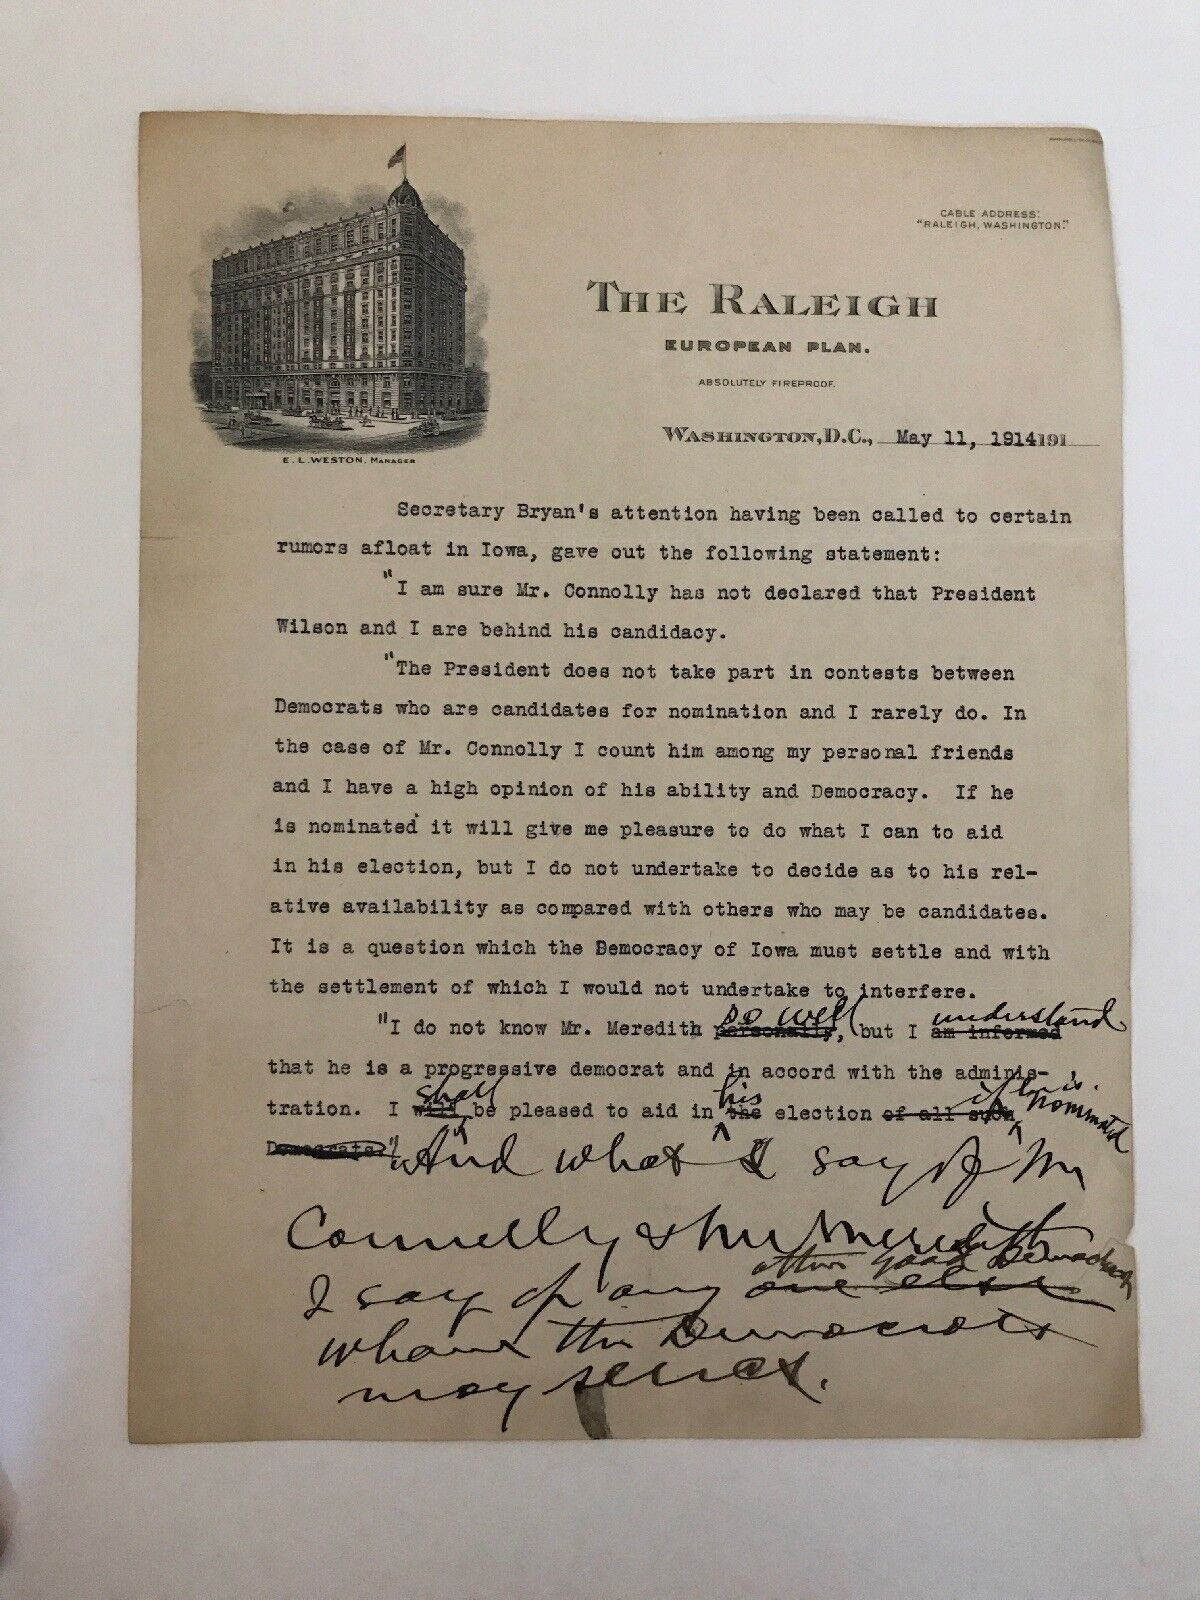 CABLE ADDRESS:
"RALEIGH, WASHINGTON."
THE RALEIGH
EUROPEAN PLAN.
ABSOLUTELY FIREPROOF.
WASHINGTON, D.C., May 11, 1914191
E. L. WESTON, MANAGER
Secretary Bryan's attention having been called to certain
rumors afloat in Iowa, gave out the following statement:
"I am sure Mr. Connolly has not declared that President
Wilson and I are behind his candidacy.
"The President does not take part in contests between
Democrats who are candidates for nomination and I rarely do. In
the case of Mr. Connolly I count him among my personal friends
and I have a high opinion of his ability and Democracy. If he
is nominated it will give me pleasure to do what I can to aid
in his election, but I do not undertake to decide as to his rel-
ative availability as compared with others who may be candidates.
It is a question which the Democracy of Iowa must settle and with
the settlement of which I would not undertake to interfere.
so well understand
"I do not know Mr. Meredith personally, but I am informed
that he is a progressive democrat and in accord with the adminis-
shall his if he is nominated
tration. I will be pleased to aid in the election of all such
Democrats." And what I say of Mr
Connolly & Mr Meredith
other good Democrats
I say of any one else
whom the Democrats
may select.